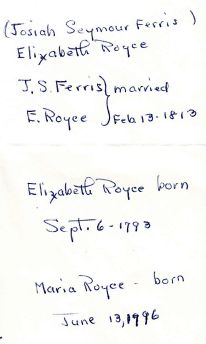 (Josiah Seymour Ferris )
Elizabeth Royce
J.S. Ferris } married
E. Royce } Feb 13-1813
Elizabeth Royce born
Sept. 6-1793
Maria Royce - born
June 13, 1996